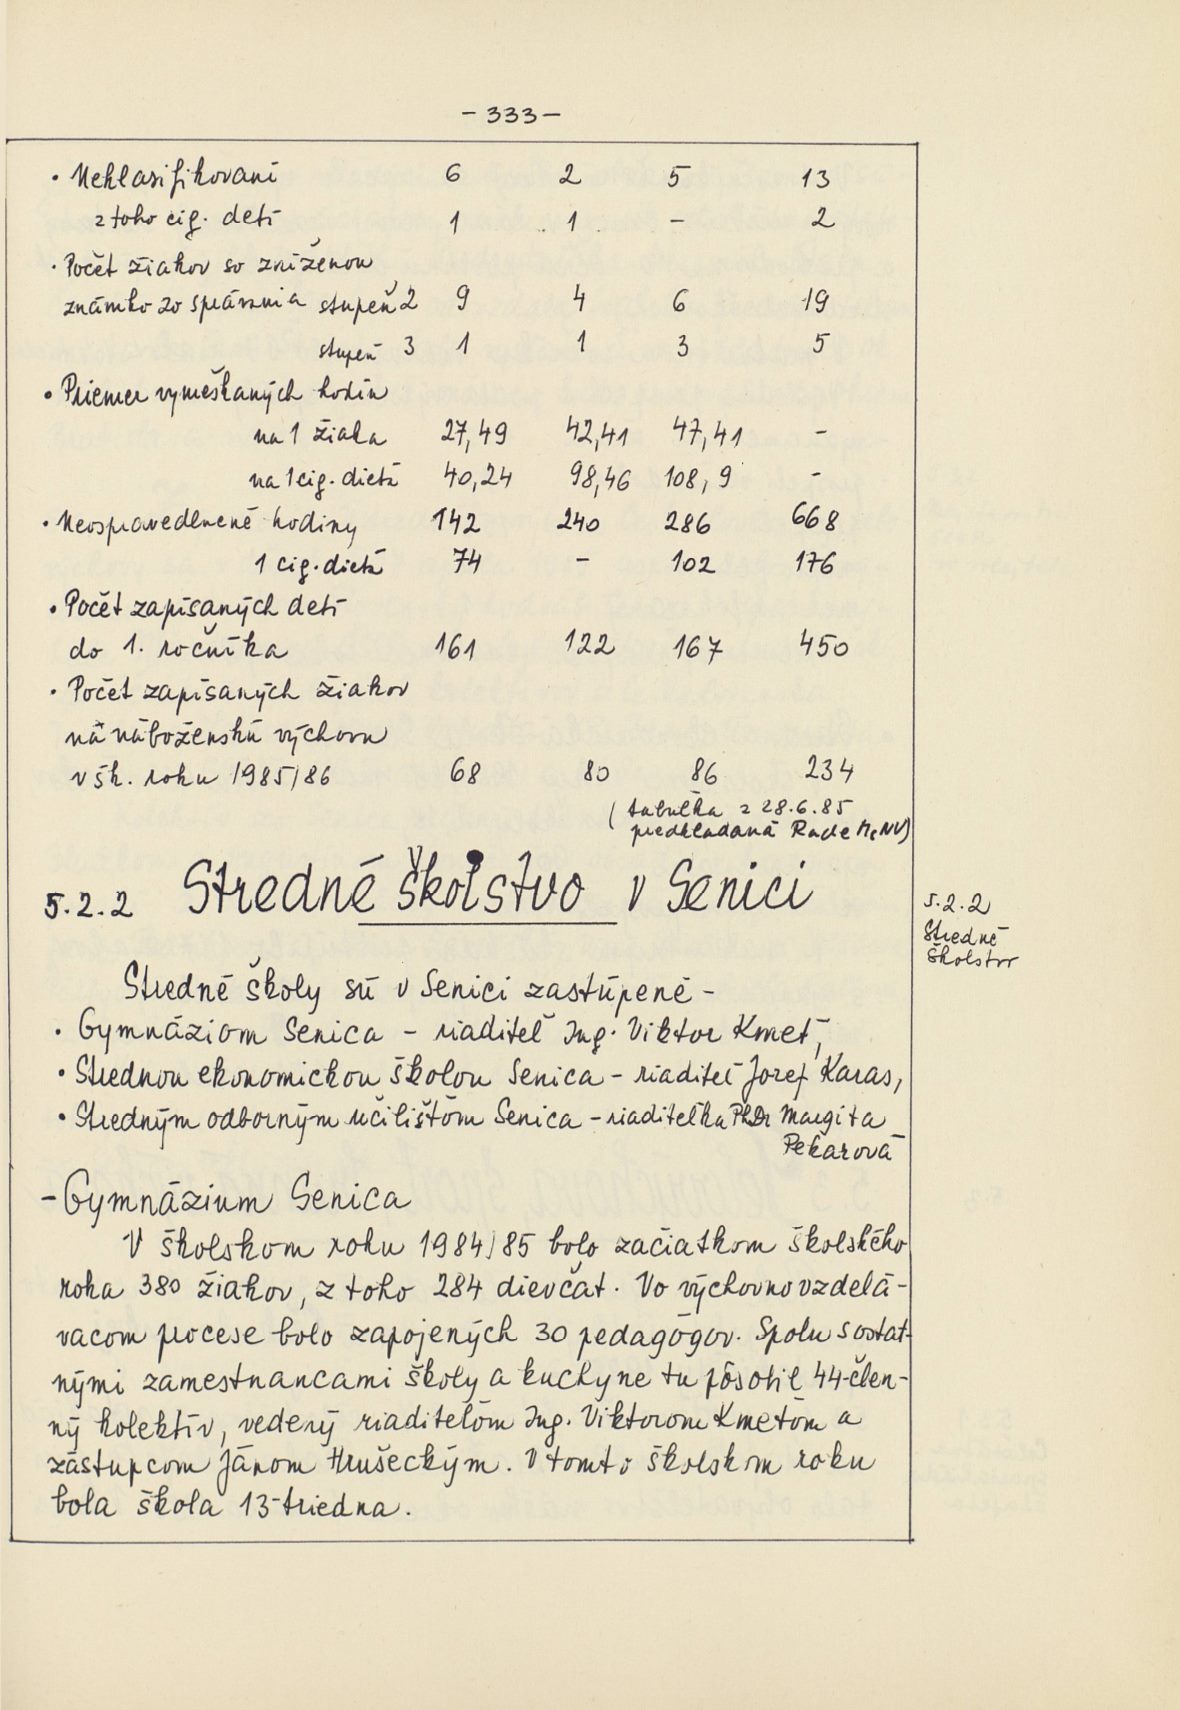 - 333 -
• Neklasifikovaní 6 2 5 13
z toho cig. detí 1 1 - 2
• Počet žiakov so zníženou
známkou zo správania stupeň 2 9 4 6 19
stupeň 3 1 1 3 5
• Priemer vymeškaných hodín
na 1 žiaka 27,49 42,41 47,41 -
na 1 cig. dieťa 40,24 98,46 108,9 -
• Neospravedlnené hodiny 142 240 286 668
1 cig. dieťa 74 - 102 176
• Počet zapísaných detí
do 1. ročníka 161 122 167 450
• Počet zapísaných žiakov
na náboženskú výchovu
v šk. roku 1985/86 68 80 86 234
(tabuľka z 28.6.85
predkladaná Rade MsNV)
5.2.2 Stredné školstvo v Senici
5.2.2
Stredné
školstvo
Stredné školy sú v Senici zastúpené -
• Gymnáziom Senica - riaditeľ Ing. Viktor Kmeť,
• Strednou ekonomickou školou Senica - riaditeľ Jozef Karas,
• Stredným odborným učilišťom Senica - riaditeľka PhDr Margita
Pekarová
- Gymnázium Senica
V školskom roku 1984/85 bolo začiatkom školského
roka 380 žiakov, z toho 284 dievčat. Vo výchovnovzdelá-
vacom procese bolo zapojených 30 pedagógov. Spolu s ostat-
nými zamestnancami školy a kuchyne tu pôsobil 44-člen-
ný kolektív, vedený riaditeľom Ing. Viktorom Kmeťom a
zástupcom Jánom Hrušeckým. V tomto školskom roku
bola škola 13-triedna.